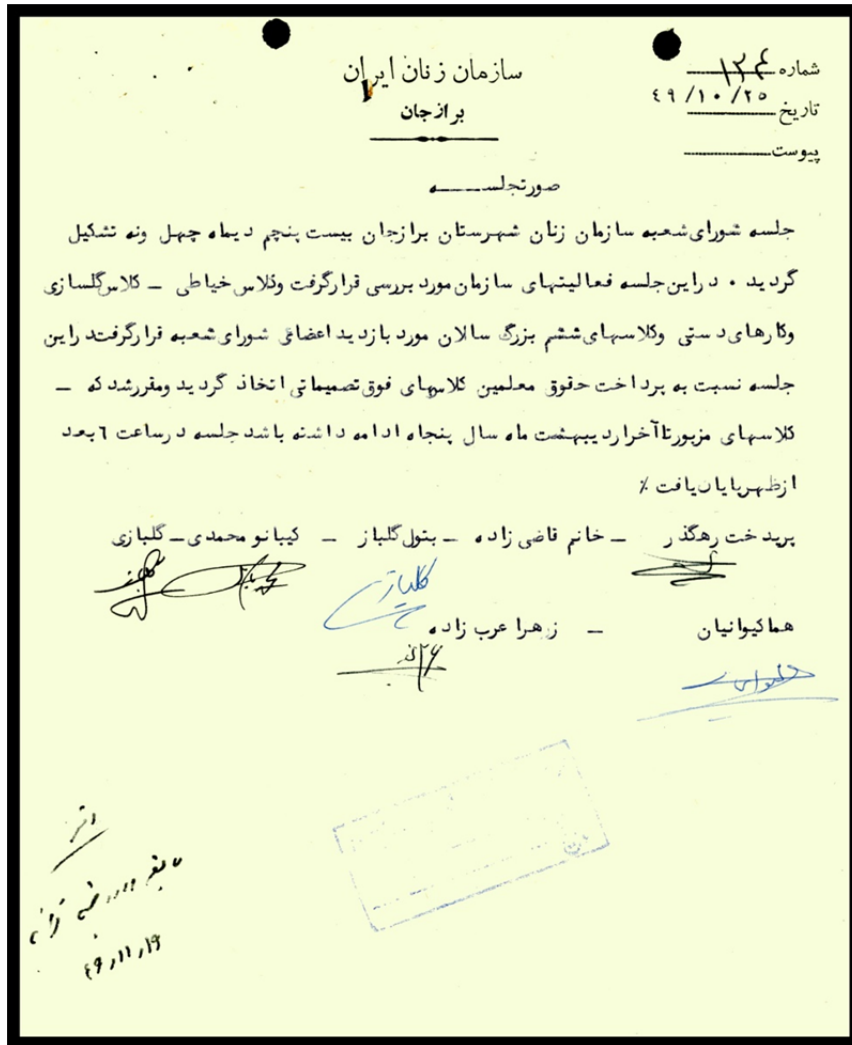 سازمان زنان ایران
برازجان
شماره ۱۳۴
تاریخ ۴۹/۱۰/۲۵
پیوست
صورتجلسه
جلسه شورای شعبه سازمان زنان شهرستان برازجان بیست پنجم دیماه چهل ونه تشکیل
گردید ۰ دراین جلسه فعالیتهای سازمان مورد بررسی قرارگرفت وکلاس خیاطی – کلاس گلسازی
وکارهای دستی وکلاسهای ششم بزرگ سالان مورد بازدید اعضائ شورای شعبه قرارگرفتدراین
جلسه نسبت به پرداخت حقوق معلمین کلاسهای فوق تصمیماتی اتخاذ گردید ومقررشد که –
کلاسهای مزبورتاآخراردیبهشت ماه سال پنجاه ادامه داشته باشد جلسه درساعت ٦ بعد
ازظهرپایان یافت ٪
پریدخت رهگذر – خانم قاضی زاده – بتول گلباز – کیبانو محمدی – گلبازی
گلبازی
هماکیوانیان – زهرا عرب زاده
۴۹/۱۱/۱۹